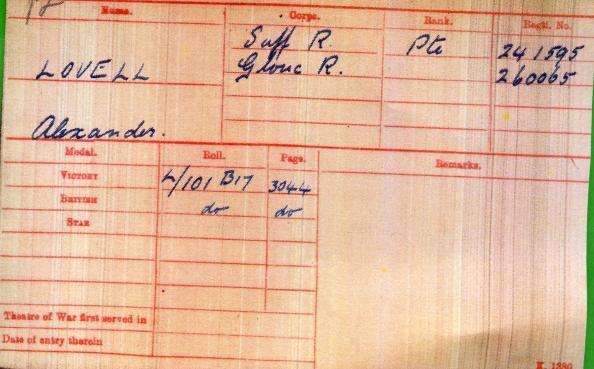 Name. Corps. Rank. Regtl. No.
Suff R. Pte 241595
LOVELL Glouc R. 260065
Alexander.
Medal. Roll. Page. Remarks.
VICTORY L/101 B17 3044
BRITISH do do
STAR
Theatre of War first served in
Date of entry therein
K. 1380